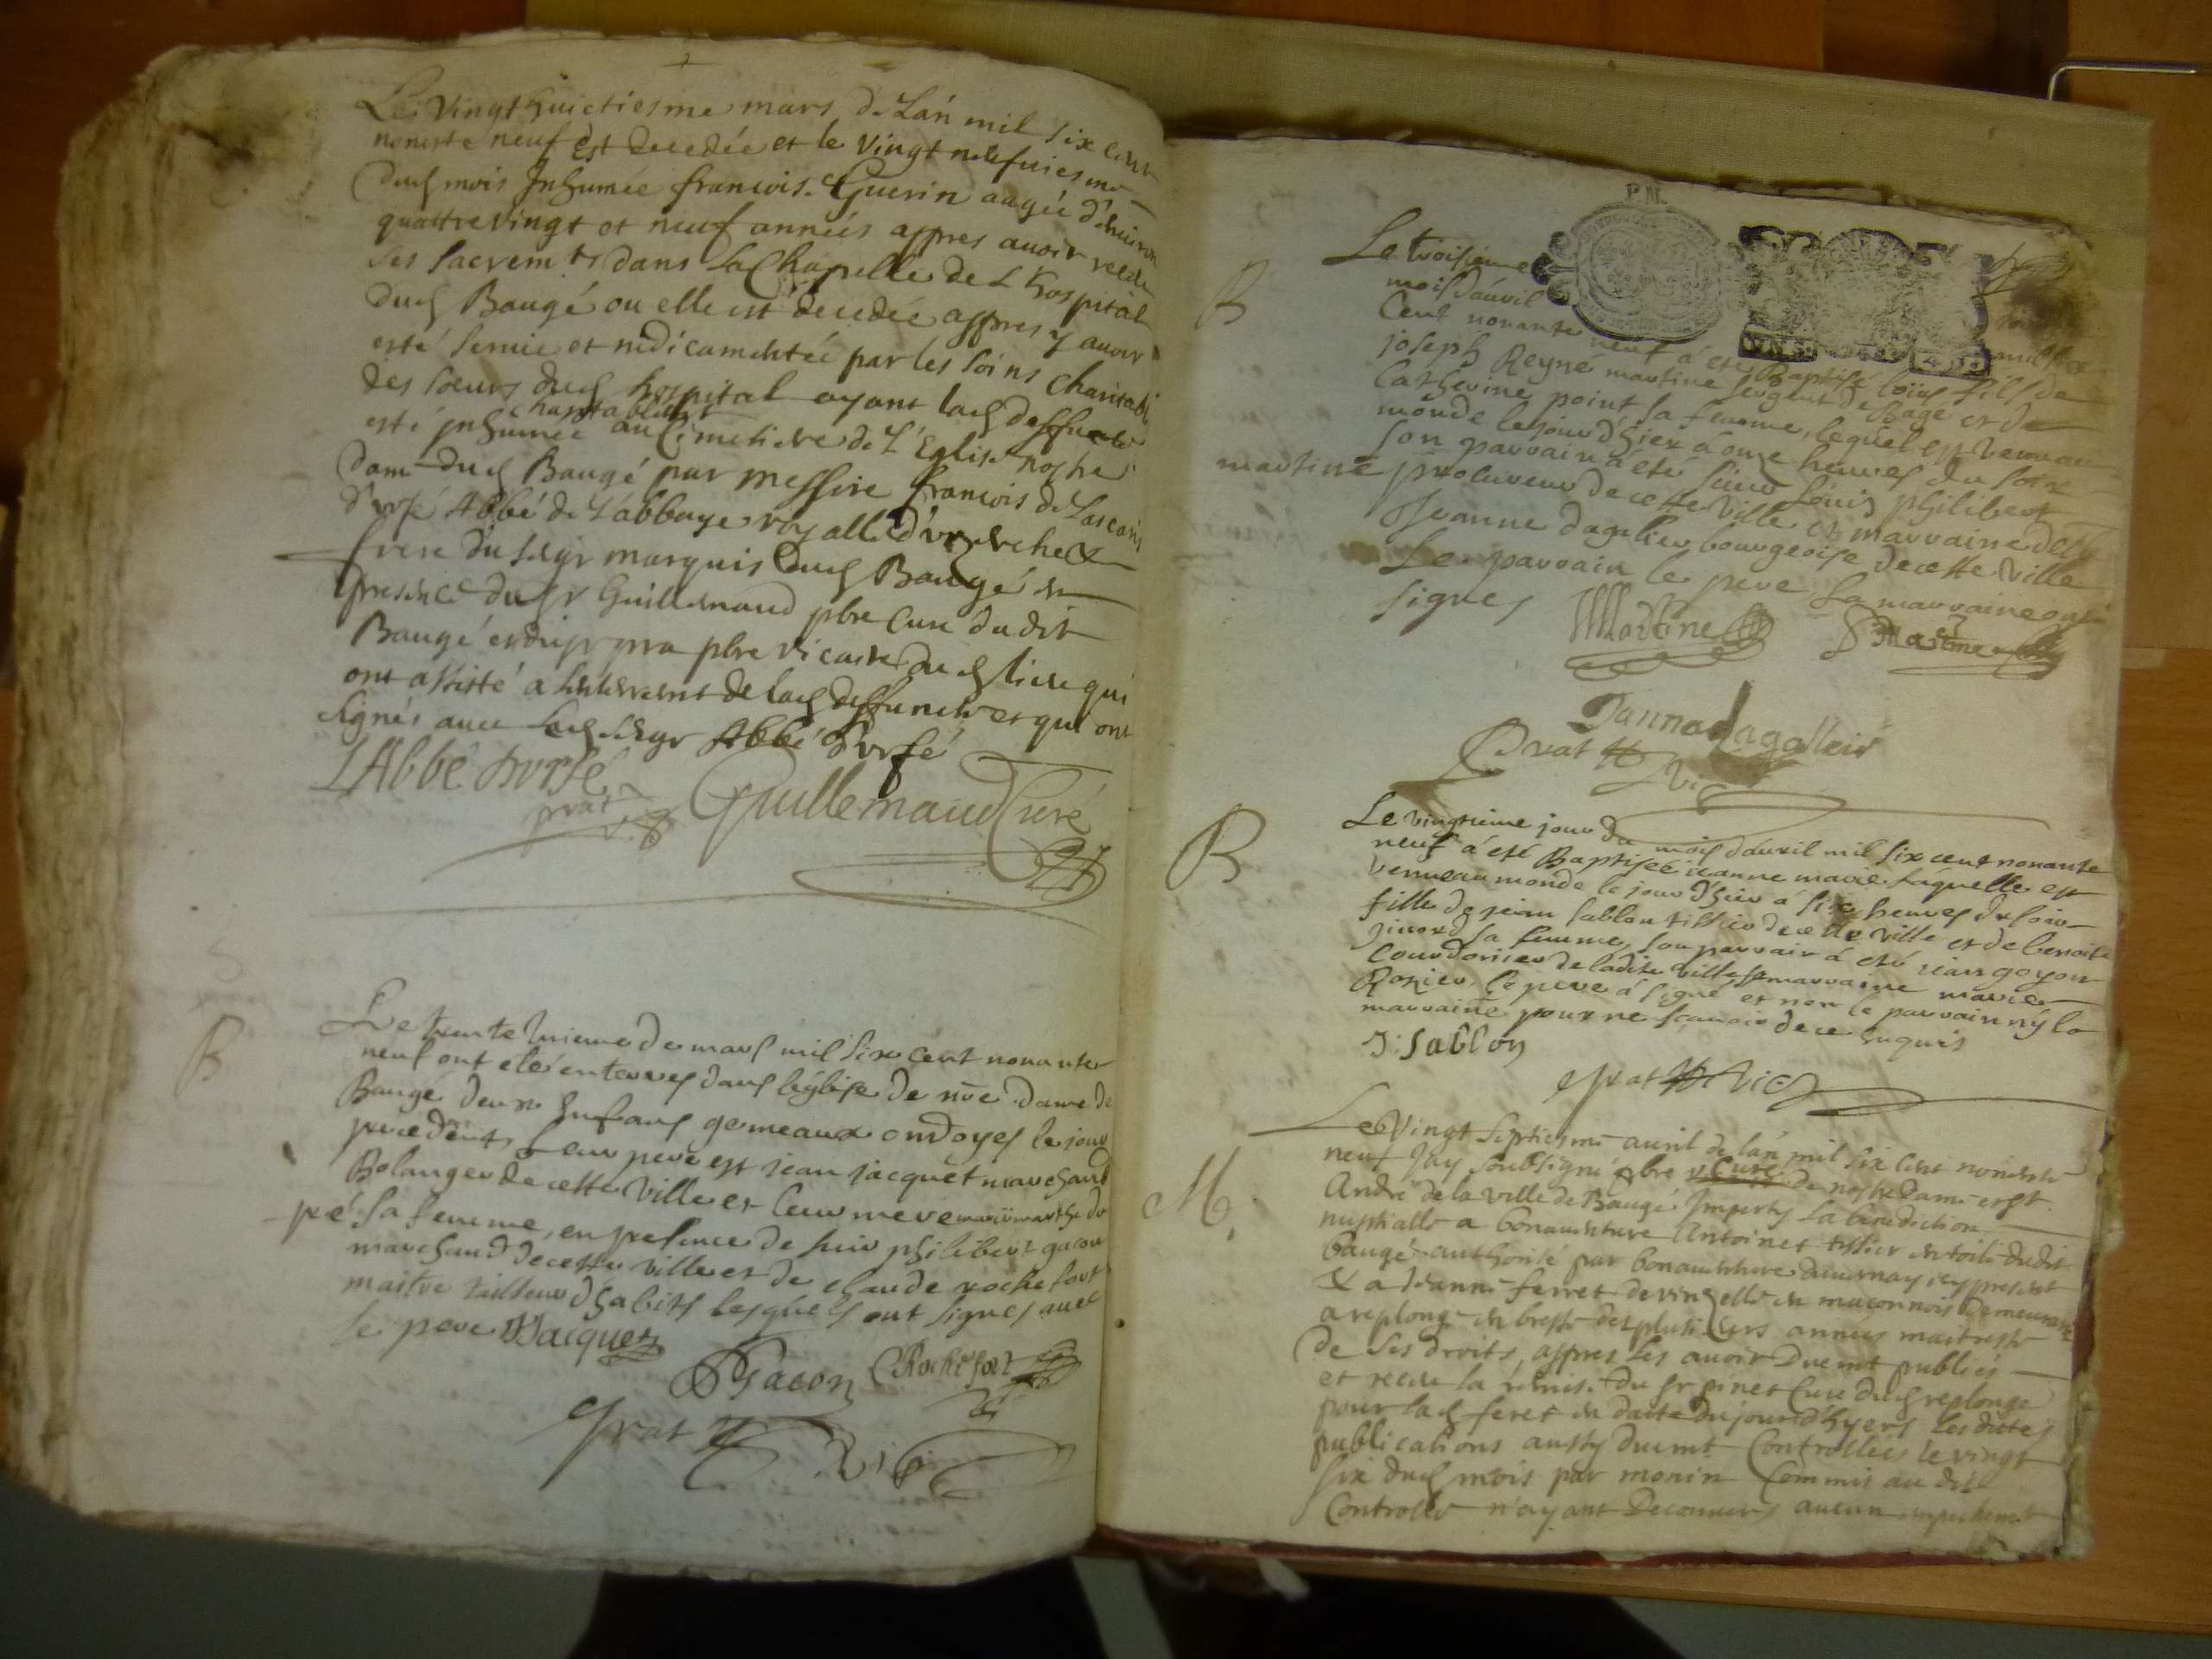 Le Vingt huictiesme mars de Lan mil six cent
nonente neuf est decedée et le vingt neufuiesme
dud mois Inhumée francois. Guerin aagée d'enuiron
quattre vingt et neuf années appres auoir receu
ses sacrem.ts dans la Chapelle de L hospital
dud Baugé ou elle est decedée appres y auoir
esté seruie et medicamentée par les soins charitabl
des soeurs dud hospital ayant lad deffuncte
esté inhumée charitablemt au Cimetiere de L'Eglise nostre
dame dud Baugé par Messire francois de Lascaris
d'urfé Abbé de L'abbaye royalle d'uzerche &
frere du segr marquis dud Baugé en
presence du sr Guillemaud pbre Cure dudit
Baugé et du sr prra pbre vicaire dud lieu qui
ont assisté a lenterremt de lad deffuncte et qui ont
signés auec led segr Abbé d'urfé
LAbbé durfé
prat v.
Guillemaud Curé
B
Le trente unieme de mars mil six cent nonante
neuf ont eté enterres dans l'église de nre dame de
Baugé deux Enfans gemeaux ondoyes le jour
precedent, leur pere est jean jacquet marchand
Bolanger de cette Ville et leur mere marie marthe du
pré sa femme, en presence de sieur philibert gacon
marchand de cette ville et de claude rochefort
maitre tailleur d'habits lesquels ont signes auec
le pere JJacquet
P Gacon C Rochefort
Prat Vic
P.N.
B
Le troisieme
mois dauril mil six
Cent nonante neuf à eté Baptisé louis fils de
joseph Reyné martine sergent de Bagé et de
Catherine point sa femme, lequel est venu au
monde le jour d'hier à onze heures du soir
son parrain à été sieur Louis philibert
martine procureur de cette Ville et marraine delle
Jeanne dagallier bourgeoise de cette Ville
Le parrain le pere La marraine ont
signes
Martine P Martine
Janna dagallier
Prat Vic
B
Le vingtieme jour du mois dauril mil six cent nonante
neuf à eté Baptisée jeanne marie Laquelle est
venue au monde le jour d'hier à six heures du soir
fille de jean sablon tissier de cette ville et de benoite
pinord sa femme, son parrain à eté jean goyon
Courdonier de ladite ville sa marraine marie
Rozier, le pere à signé et non le parrain ny la
marraine pour ne scauoir de ce Enquis
J: Sablon
Prat Vic
M.
Le Vingt septiesme auril de lan mil six cent nonente
neuf Jay soubsigné pbre Curé de nostre dame et st.
André de la ville de Baugé Imparty La benediction
nuptialle a bonauenture Antoinet tissier en toile dudit
baugé authorisé par bonauenture dauurnay icy present
& a Jeanne ferret de vinzelle en maconnois Demeurant
a replonge en bresse despluseurs années maitresse
de ses droits, appres les auoir Duemt publiés
et receu la remise du sr pinet Cure dud replonge
pour lad feret en datte du jour d'hyer, Lesdittes
publications aussy duemt Controllées le vingt
six dud mois par monin Commis au dit
Controlle n'ayant Decouuers aucun empechemt